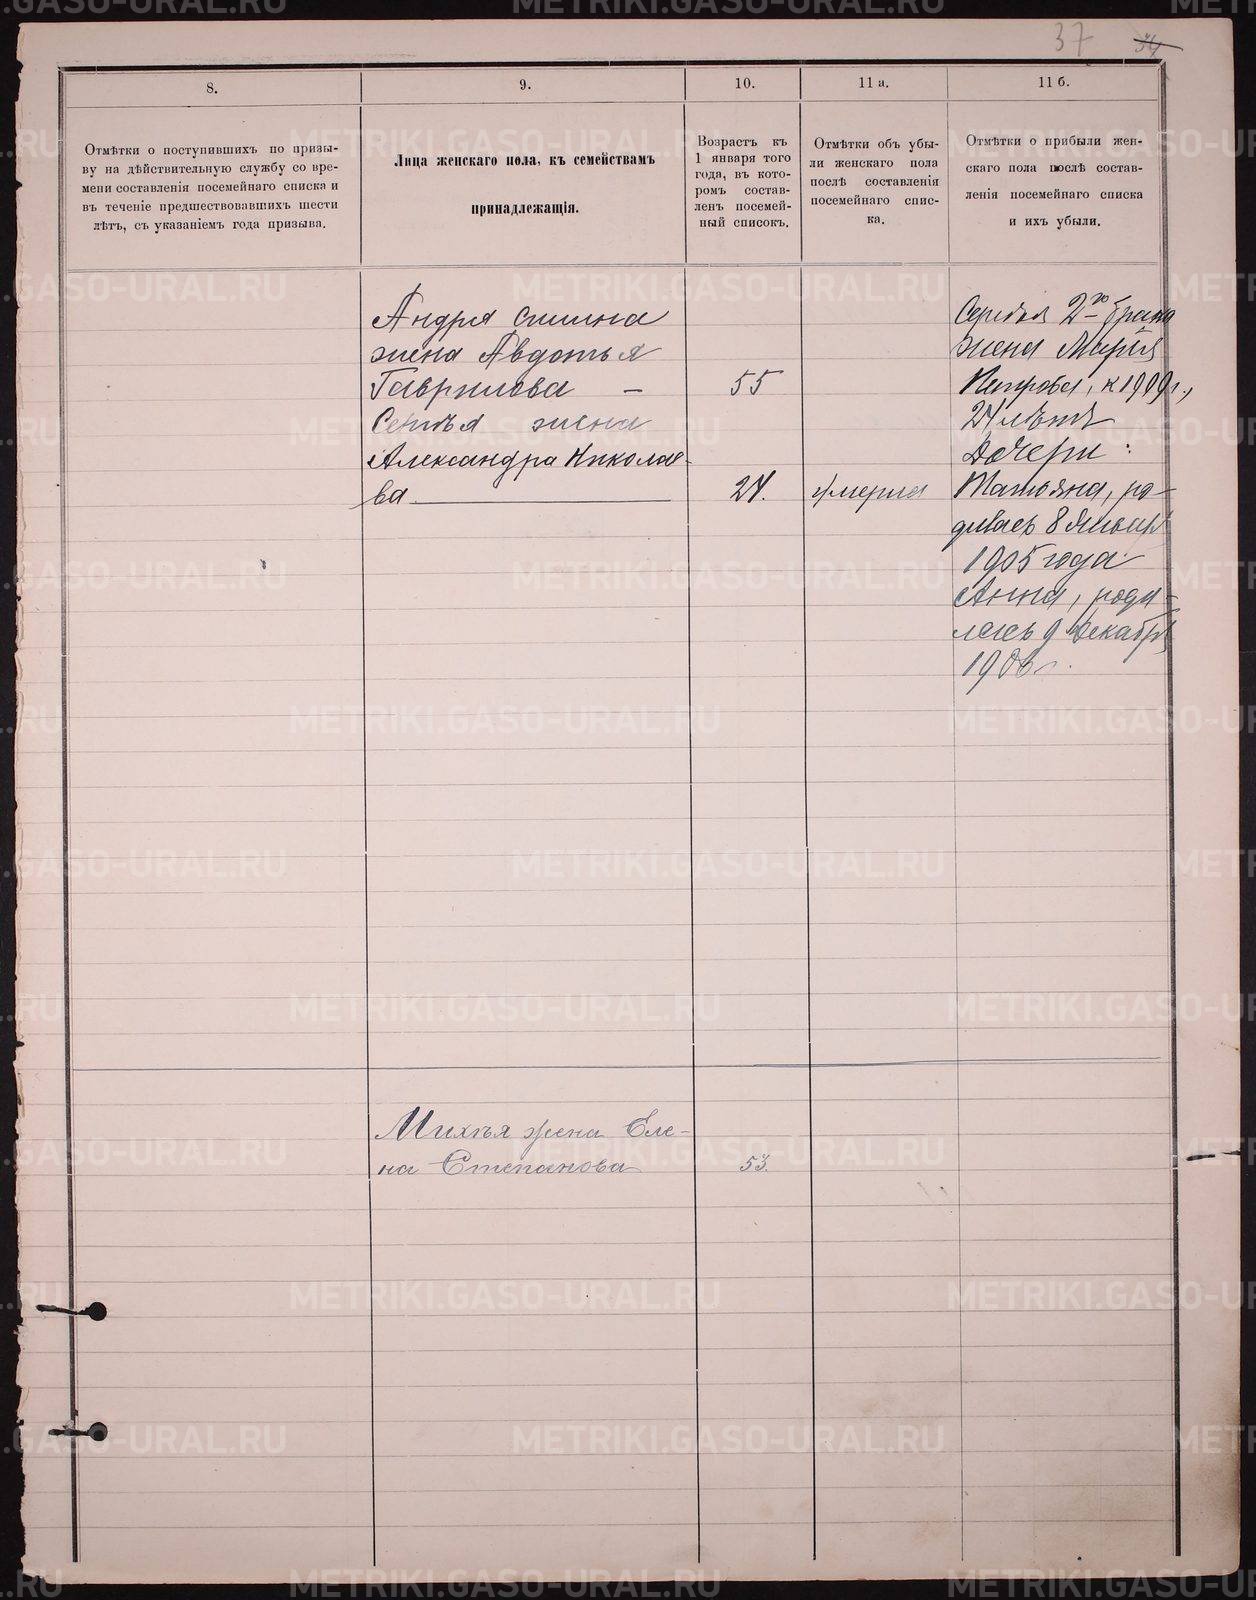 37 34
8.
9.
10.
11 а.
11 б.
Отмѣтки о поступившихъ по призы-
ву на дѣйствительную службу со вре-
мени составленія посемейнаго списка и
въ теченіе предшествовавшихъ шести
лѣтъ, съ указаніемъ года призыва.
Лица женскаго пола, къ семействамъ
принадлежащія.
Возрастъ къ
1 января того
года, въ кото-
ромъ состав-
ленъ посемей-
ный списокъ.
Отмѣтки объ убы-
ли женскаго пола
послѣ составленія
посемейнаго спис-
ка.
Отмѣтки о прибыли жен-
скаго пола послѣ состав-
ленія посемейнаго списка
и ихъ убыли.
Андрея
жена Авдотья
Гаврилова — 55
жена
Александра Николае-
ва 24. умерла
2го брака
жена Марія
Петрова, к 1909 г.,
24 лѣтъ
Дочери:
Татьяна, ро-
дилась 8 Январѣ
1905 года
Анна, роди-
лась 9 Декабрѣ
1906 г.
жена Еле-
на Степанова 53.
METRIKI.GASO-URAL.RU